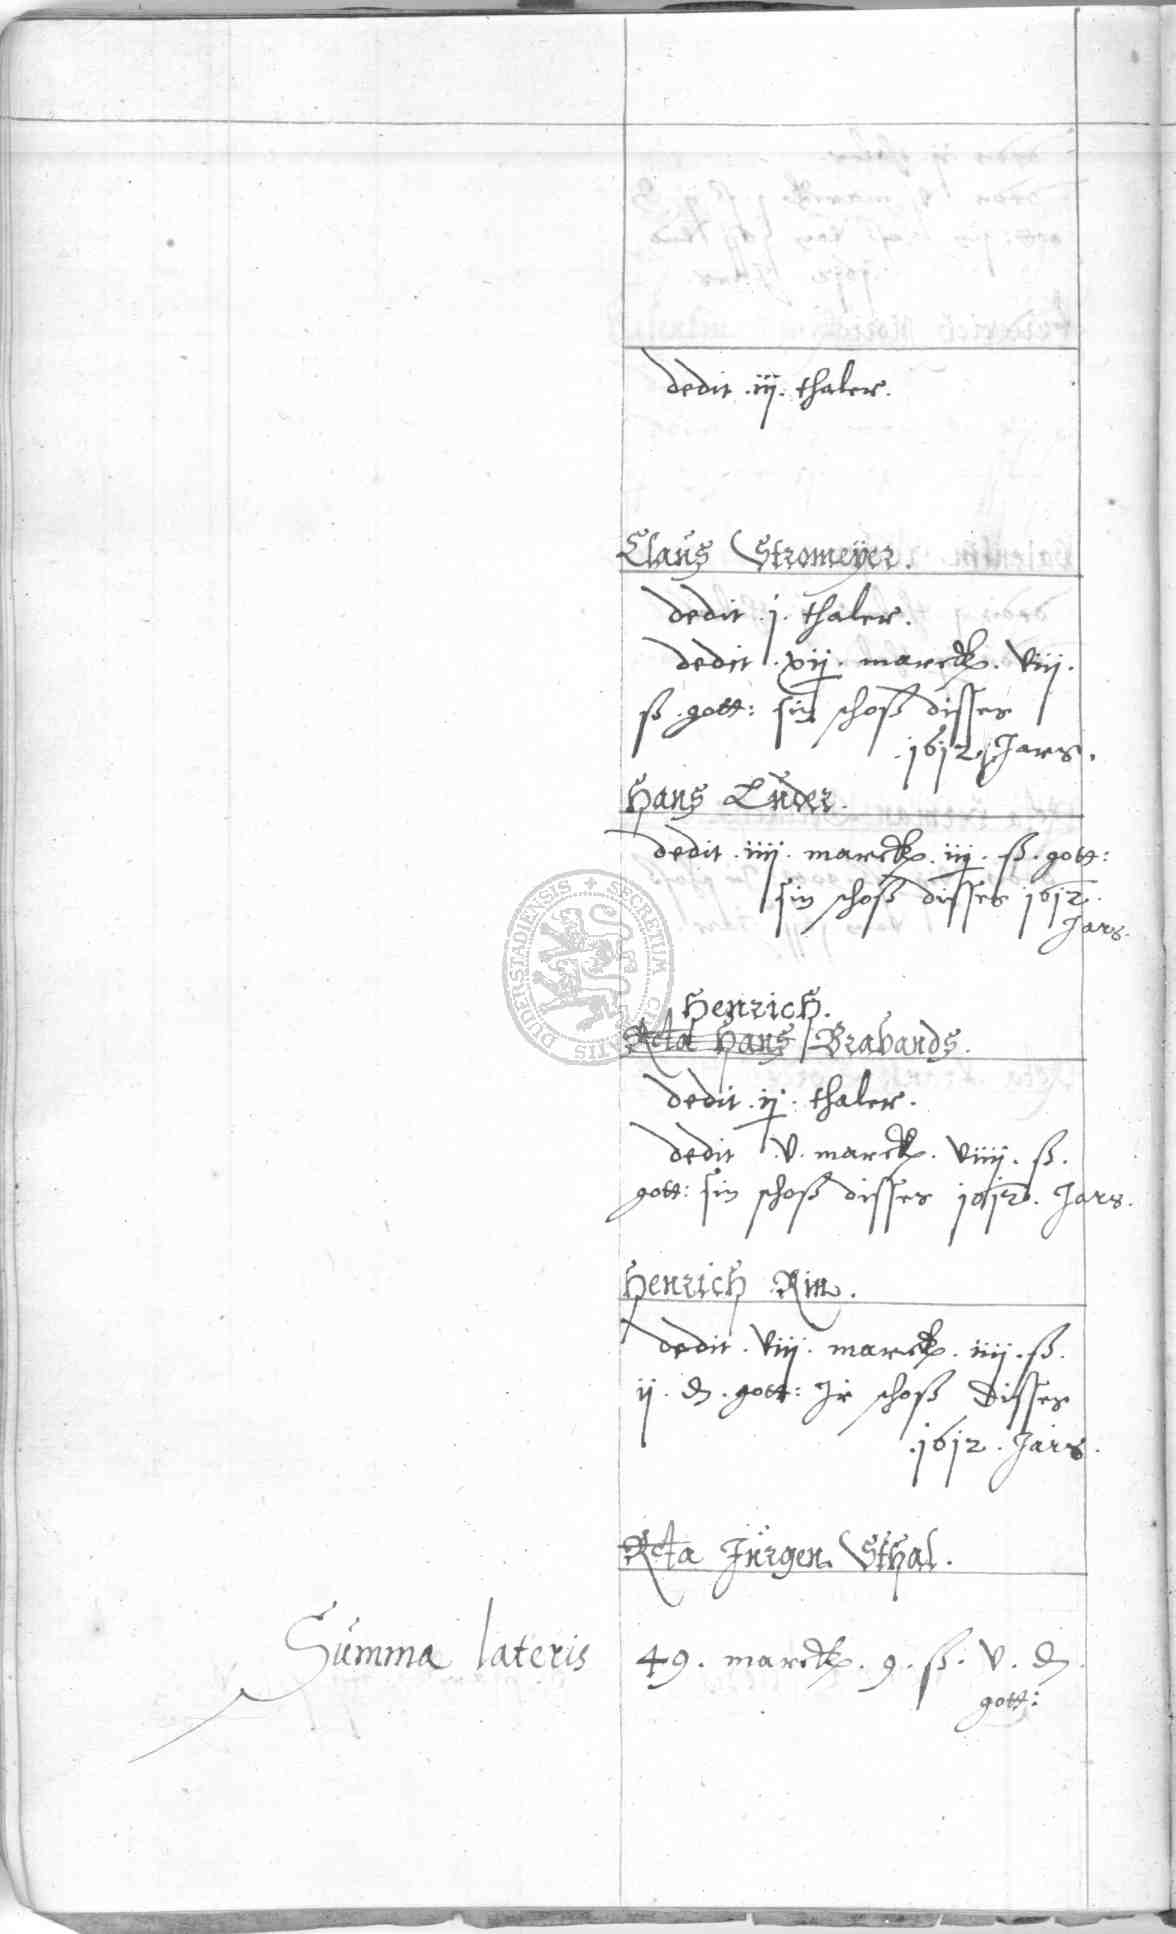 dedit .iij. thaler.
Claus Stromeÿer.
dedit .j. thaler.
dedit .xij. marck. viij.
ß .gott: sin schoß disses
.1612. Jars.
Hans Lüder.
dedit .iiij. marck. iij. ß. gott:
sin schoß disses 1612.
Jars.
Henrich.
Rcta Hans Brabands.
dedit .ij. thaler.
dedit .v. marck. viiij. ß.
gott: sin schoß disses 1612. Jars.
Henrich Rin.
dedit. viij. marck. iiij. ß.
ij. d. gott: Jr schoß disses
.1612. Jars.
Rcta Jürgen Sthal.
Summa lateris 49. marck. 9. ß. v. d
gott:
DUDERSTADIENSIS + SECRETUM CIVITATIS